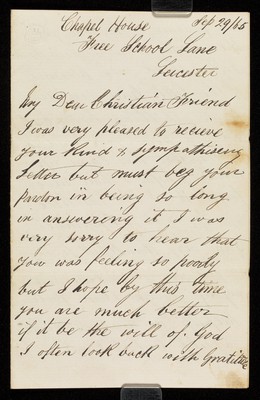 Chapel House Sep 29/65
Free School Lane
Leicester
My Dear Christian Friend
I was very pleased to recieve
your kind & sympathising
Letter but must beg your
Pardon in being so long
in answering it I was
very sorry to hear that
you was feeling so poorly
but I hope by this time
you are much better
if it be the will of God
I often look back with Gratitude